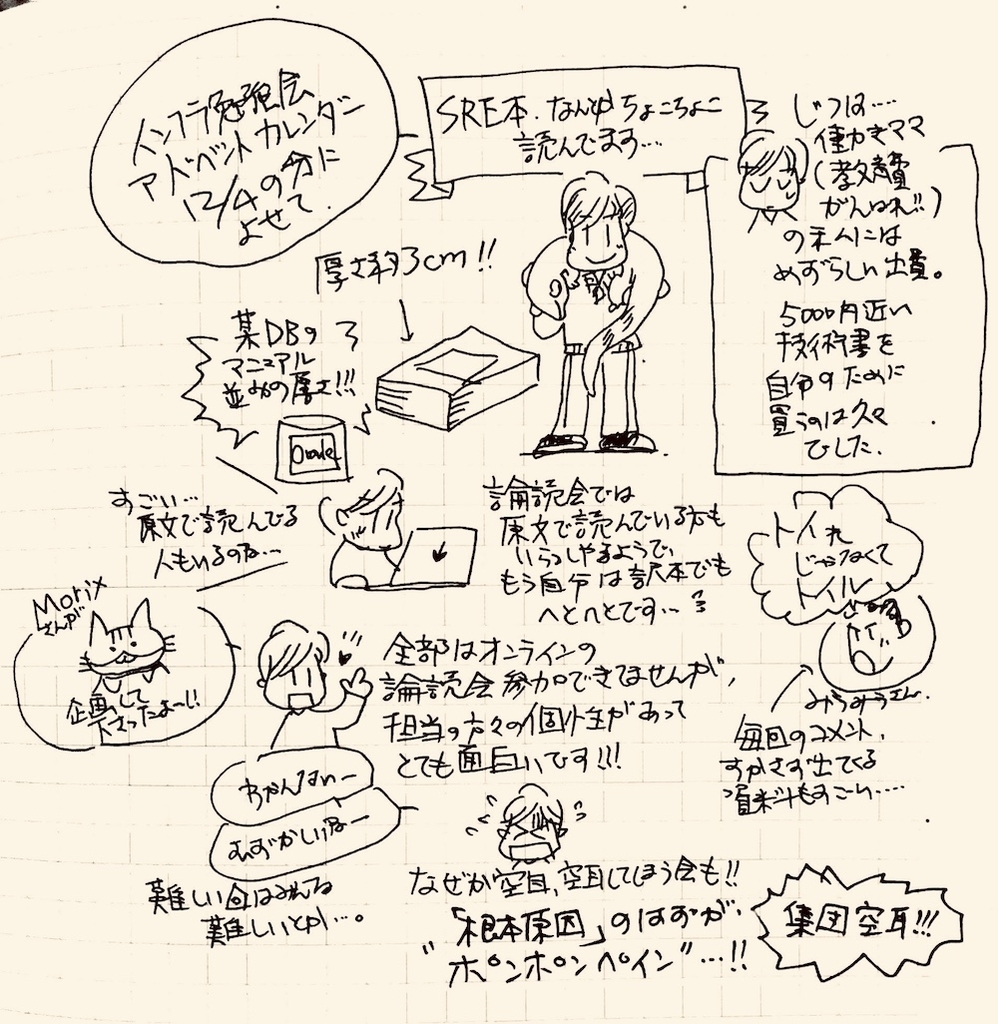 インフラ勉強会
アドベントカレンダー
12/4の分に
よせて.
SRE本、なんゆちょこちょこ
読んでます…
じつは…
働かきママ
(教育費
がんばれ!!)
の私には
めずらしい出費。
5000円近い
技術書を
自分のために
買うのは久々
でした.
厚さ約3cm!!
某DBの
マニュアル
並みの厚さ!!!
Oracle
すごい…
原文で読んでる
人もいるのな…
論読会では
原文で読んでいる方も
いらっしゃるようで、
もう自分は訳本でも
へとへとです…
トイレ
じゃなくて
トイル
みらみらさん.
毎回のコメント、
すかさず出てくる
資料もすごい……
Morix
さんが
企画して
下さったよー!!
全部はオンラインの
論読会参加できてませんが、
担当の方々の個性があって
とても面白いです!!!
わかんないー
むずかしいなー
難しい回はみんな
難しいとか…。
なぜか空目、空耳してしまう会も!!
「根本原因」のはずが、
"ポンポンペイン"…!!
集団空耳!!!